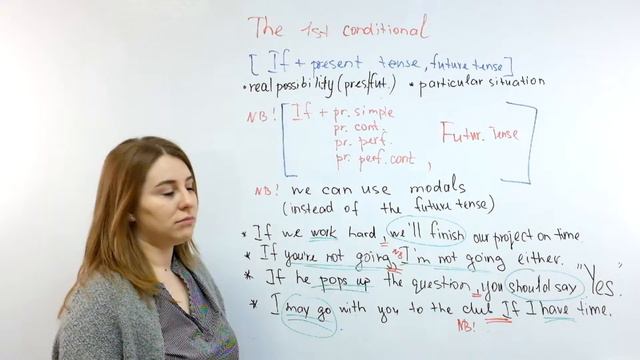 The 1st conditional
[ If + present tense, future tense ]
• real possibility (pres/fut.) * particular situation
NB! If + pr. simple
pr. cont.
pr. perf.
pr. perf. cont , Futur. Tense
NB! we can use modals
(instead of the future tense)
* If we work hard, we'll finish our project on time.
* If you're not going, NB I'm not going either.
* If he pops up the question, you should say "Yes".
* I may go with you to the club If I have time.
NB!